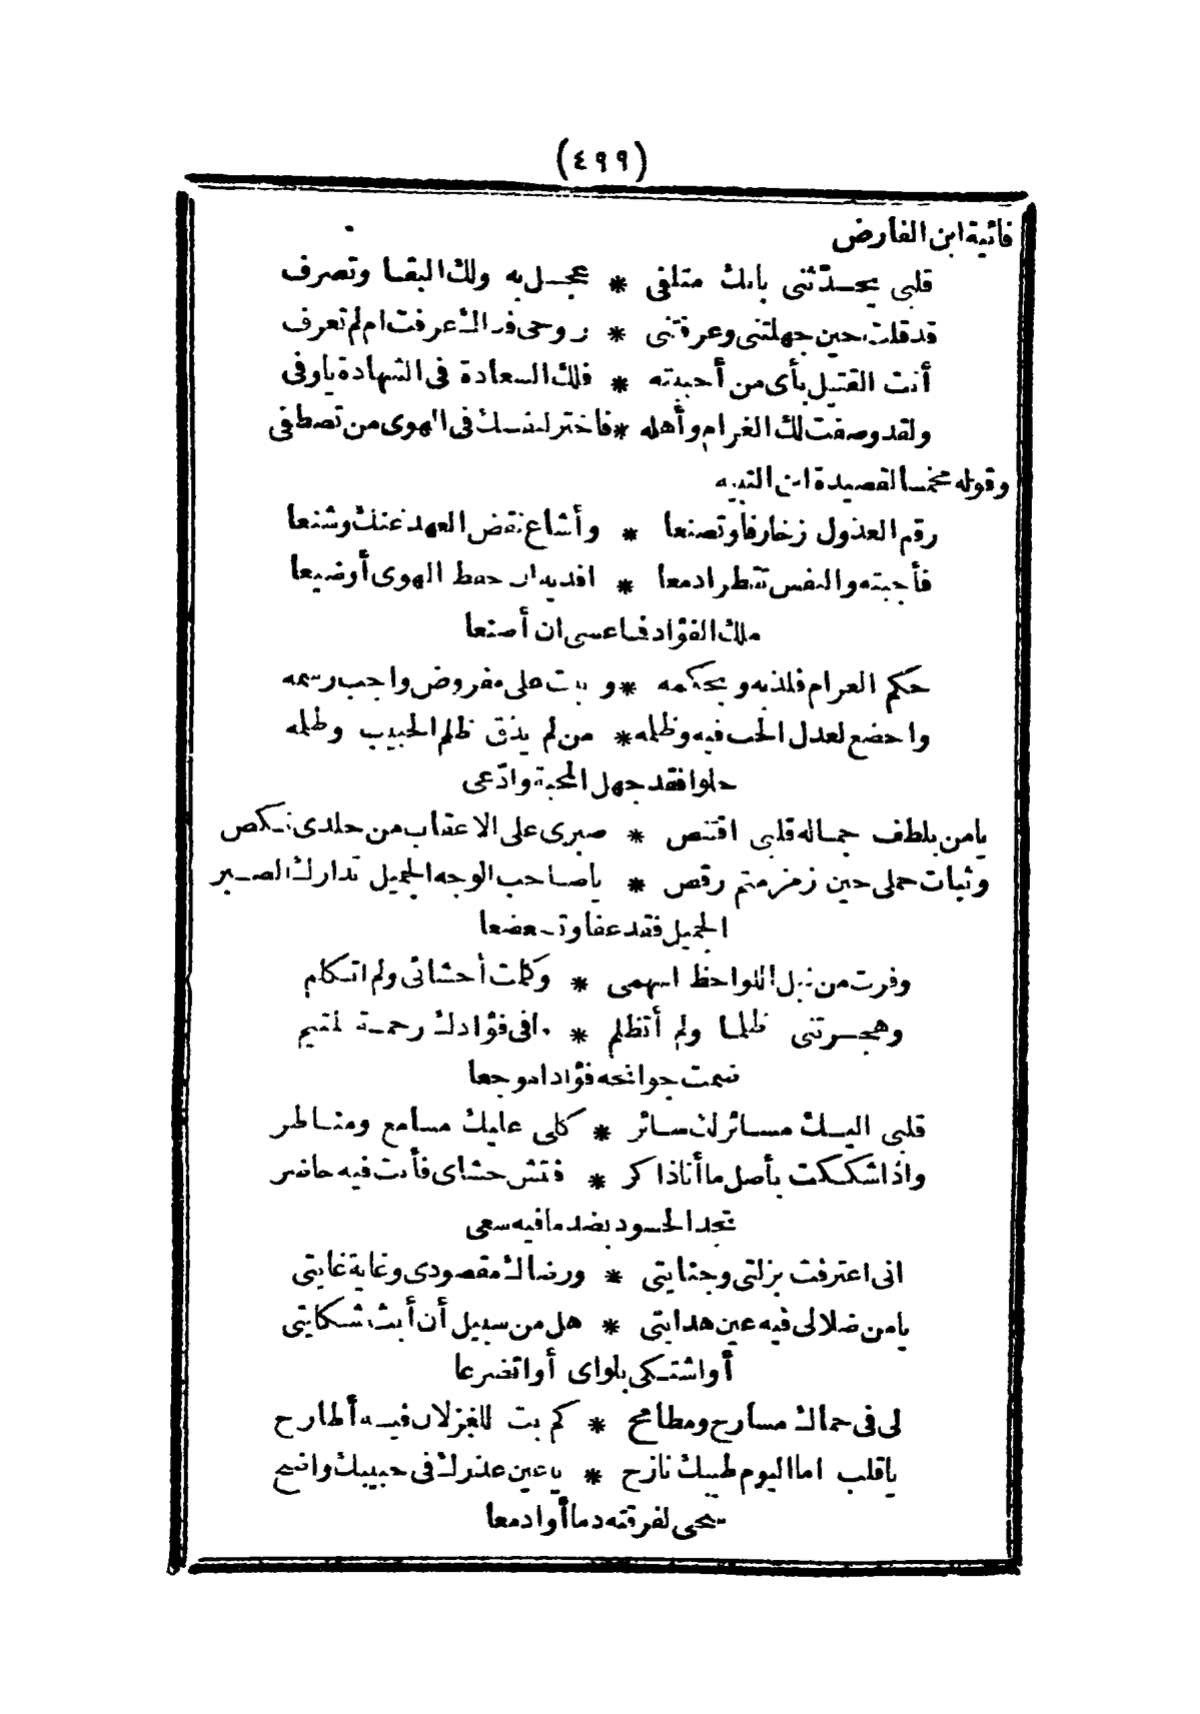 (٤٩٩)
فائية ابن الفارض
قلبى يحدّثنى بانك متلفى * عجل به ولك البقا وتصرف
قد قلت حين جهلتنى وعرفتنى * روحى فداك عرفت ام لم تعرف
أنت القتيل بأى من أحببته * فلك السعادة فى الشهادة ياوفى
ولقد وصفت لك الغرام وأهله * فاختر لنفسك فى الهوى من تصطفى
وقوله مخمسا لقصيدة ابن النبيه
رقم العذول زخارفا وتصنعا * وأشاع نقض العهد عنك وشنعا
فأجبته والنفس تقطر ادمعا * افديه ان حفظ الهوى أوضيعا
ملك الفؤاد فما عسى ان أصنعا
حكم الغرام فلذبه وبحكمه * وبت على مفروض واجب رسمه
واخضع لعدل الحب فيه وظلمه * من لم يذق ظلم الحبيب وظلمه
حلوا فقد جهل المحبة وادّعى
يامن بلطف جماله قلبى اقتنص * صبرى على الاعقاب من جلدى نكص
وثبات حملى حين زمزمتم رقص * ياصاحب الوجه الجميل تدارك الصبر
الجميل فقد عفا وتضعضعا
وفرت من نبل اللواحظ اسهمى * وكلت أحشائى ولم اتكلم
وهجرتنى ظلما ولم أتظلم * مافى فؤادك رحمة لمتيم
ضمت جوانحه فؤادا موجعا
قلبى اليك مسائر لك سائر * كلى عليك مسامع ومناظر
واذا شككت بأصل ما أنا ذاكر * فتش حشاى فأنت فيه حاضر
تجد الحسود بضد مافيه سعى
انى اعترفت بزلتى وجنايتى * ورضاك مقصودى وغاية غايتى
يامن ضلالى فيه عين هدايتى * هل من سبيل أن أبث شكايتى
أو اشتكى بلواى أو اتضرعا
لى فى حماك مسارح ومطامح * كم بت للغزلان فيه أطارح
ياقلب اما اليوم طيبك نازح * ياعين عذرك فى حبيبك واضح
سحى لفرقته دما أوادمعا